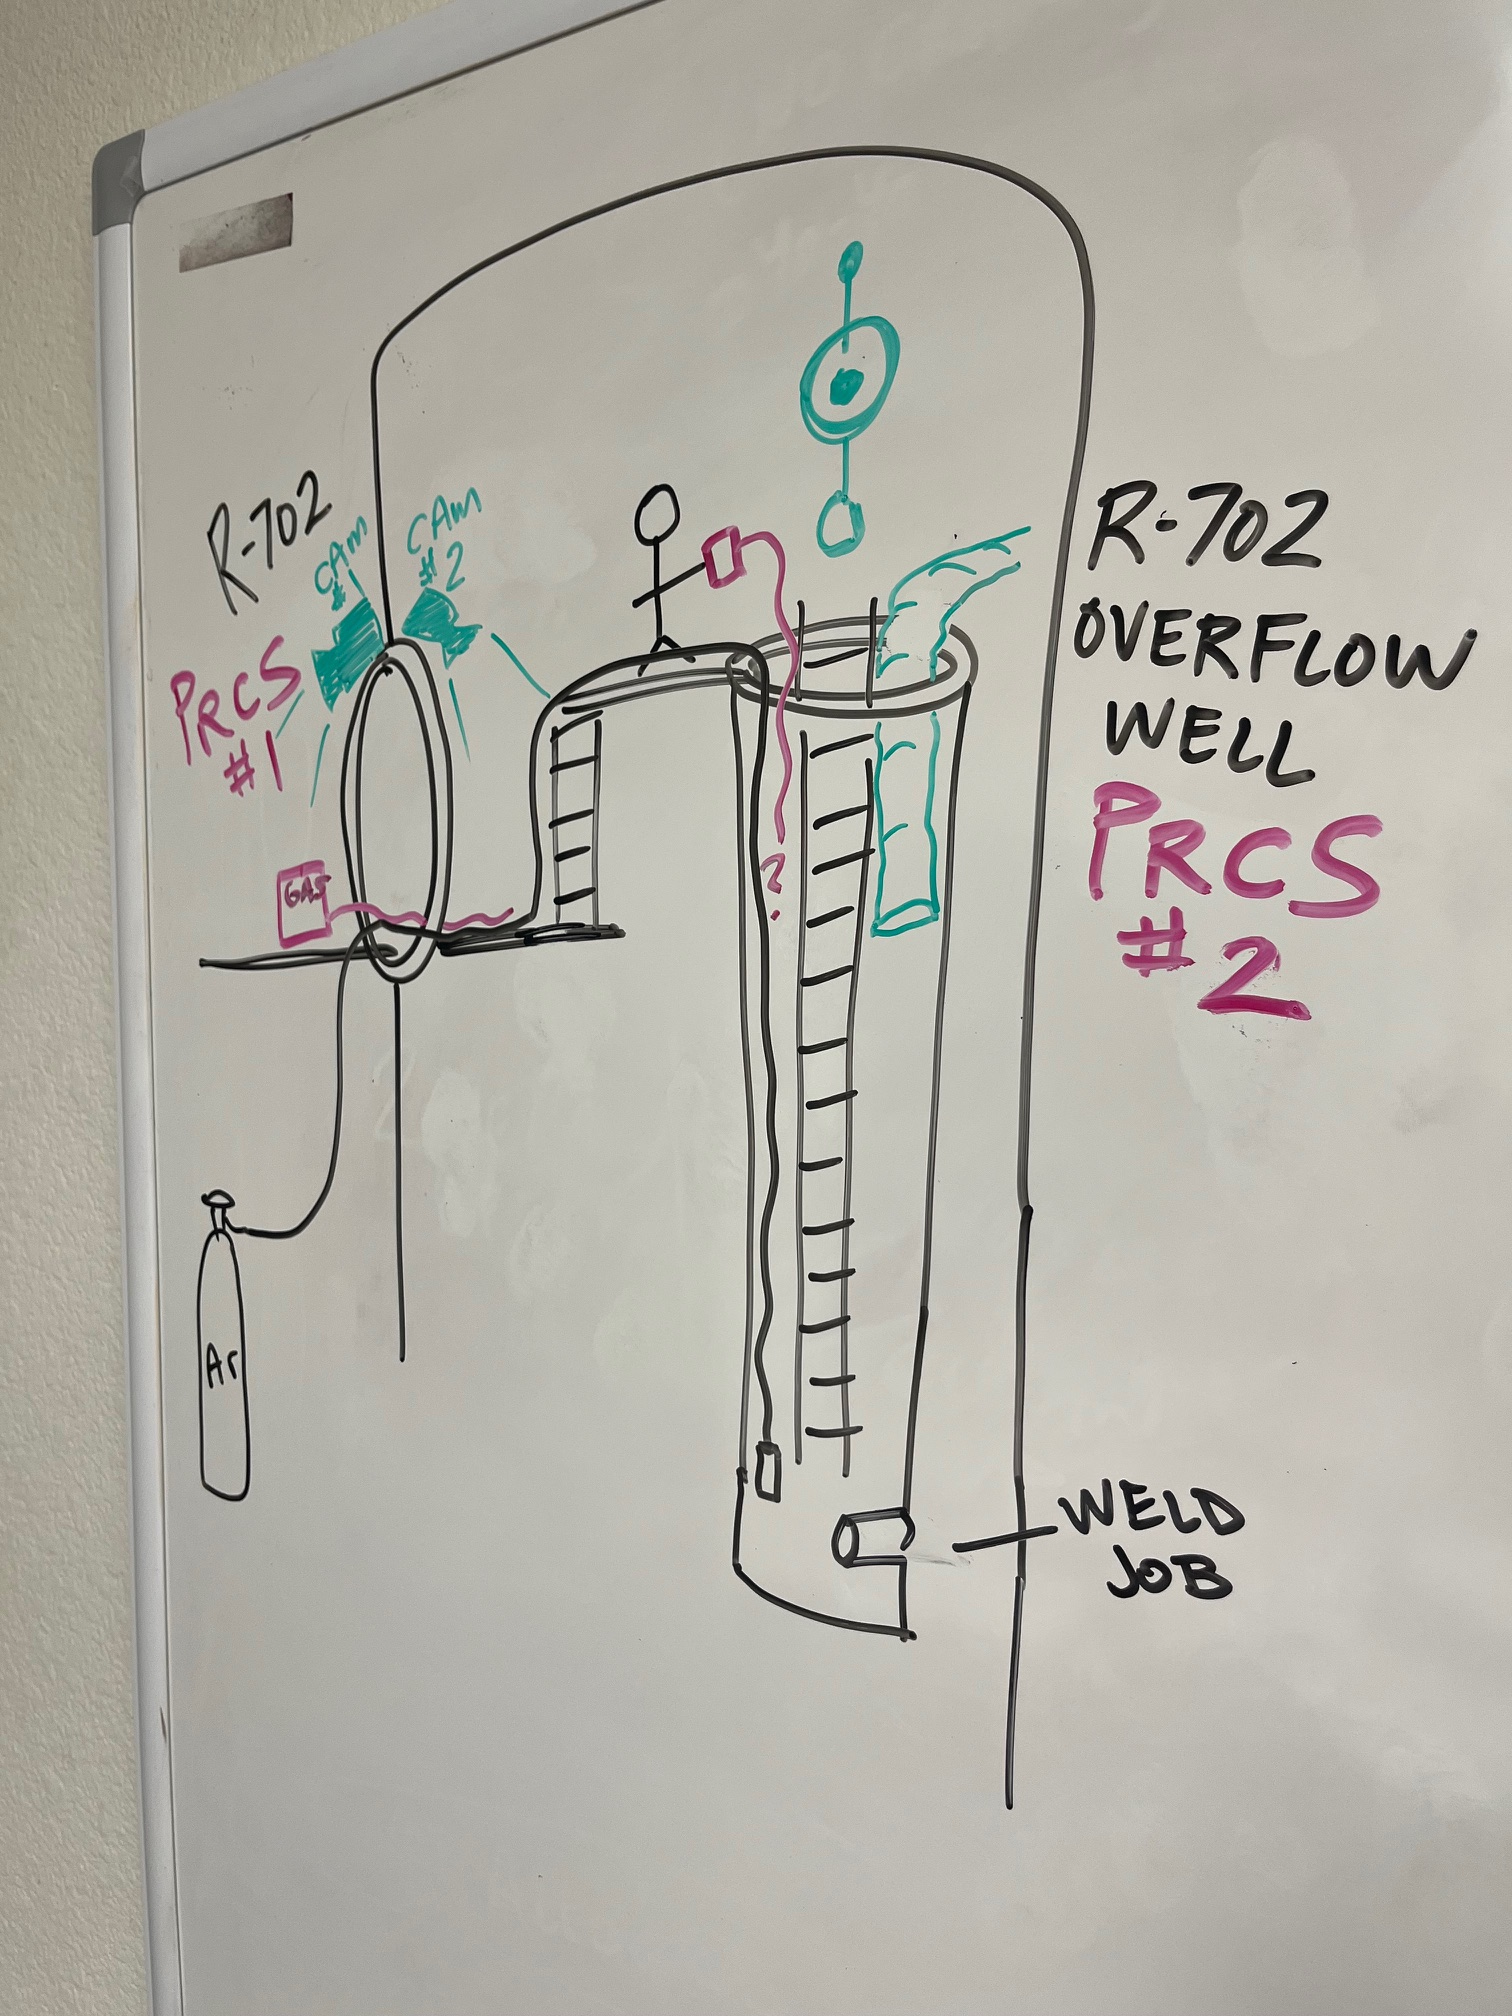 R-702
CAM
#1
CAM
#2
PRCS
#1
GAS
?
Ar
R-702
OVERFLOW
WELL
PRCS
#2
WELD
JOB